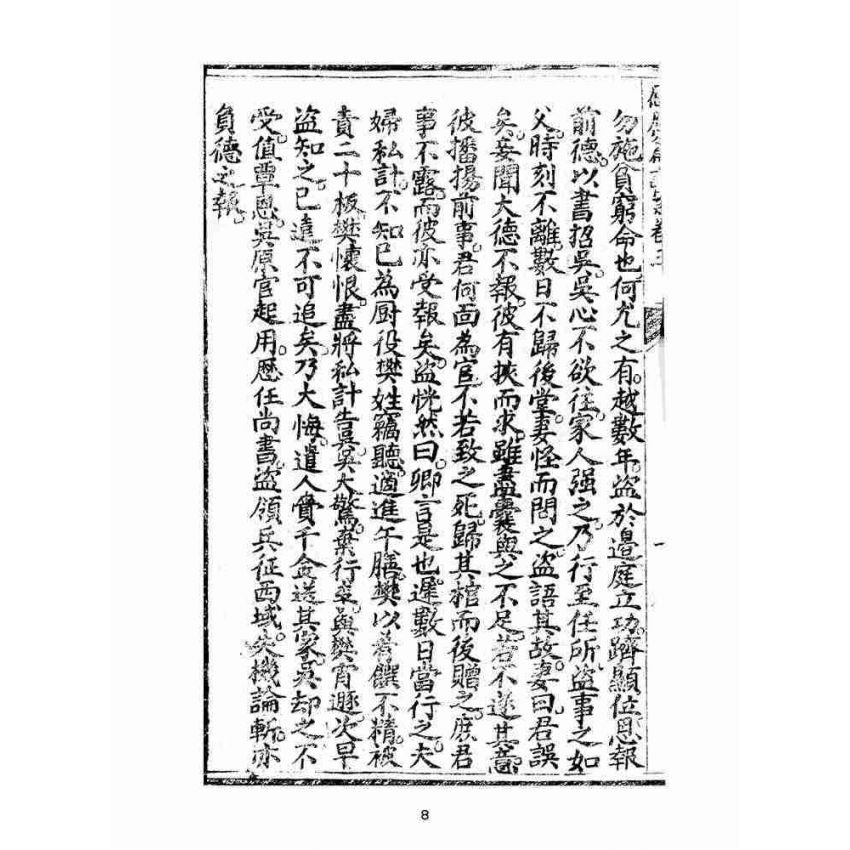 勿施貧窮命也何尤之有。越數年。盜於邊庭立功。躋顯位。思報
前德。以書招吳。吳心不欲往。家人强之。乃行至任所。盜事之如
父。時刻不離。數日不歸後堂。妻怪而問之。盜語其故。妻曰。君誤
矣。妾聞大德不報。彼有挾而求。雖盡囊與之不足。若不遂其意
彼播揚前事。君何面為官。不若致之死。歸其棺而後贈之。庶君
事不露。而彼亦受報矣。盜恍然曰。卿言是也。遲數日當行之。夫
婦私計。不知已為厨役樊姓竊聽。適進午膳。樊以肴饌不精。被
責二十板。樊懷恨。盡將私計告吳。吳大驚。棄行李。與樊宵遯。次早
盜知之。已遠不可追矣。乃大悔。遣人賫千金送其家。吳却之不
受。值覃恩。吳原官起用。歷任尚書。盜領兵征西域。失機論斬。亦
負德之報。
卷三
8